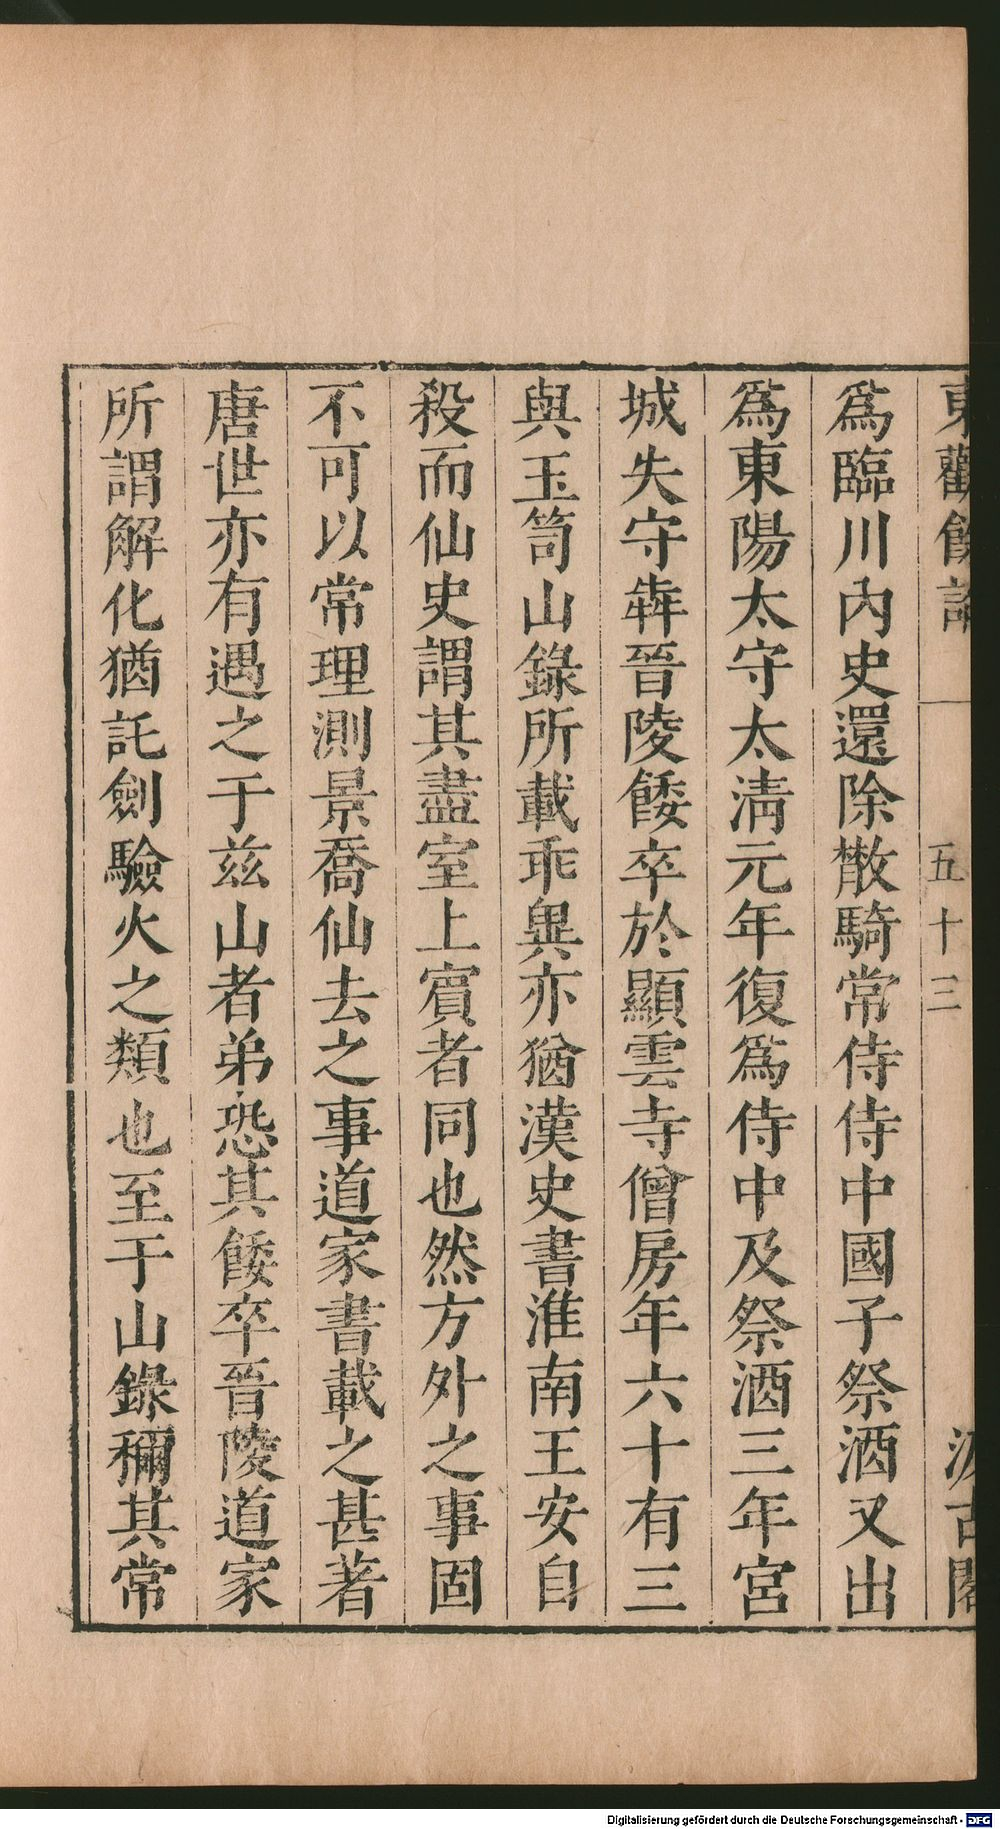 東觀餘論
五十三
汲古閣
爲臨川內史還除散騎常侍侍中國子祭酒又出
爲東陽太守太淸元年復爲侍中及祭酒三年宮
城失守犇晉陵餧卒於顯雲寺僧房年六十有三
與玉笥山錄所載乖異亦猶漢史書淮南王安自
殺而仙史謂其盡室上賓者同也然方外之事固
不可以常理測景喬仙去之事道家書載之甚著
唐世亦有遇之于茲山者弟恐其餧卒晉陵道家
所謂解化猶託劍驗火之類也至于山錄稱其常
Digitalisierung gefördert durch die Deutsche Forschungsgemeinschaft - DFG